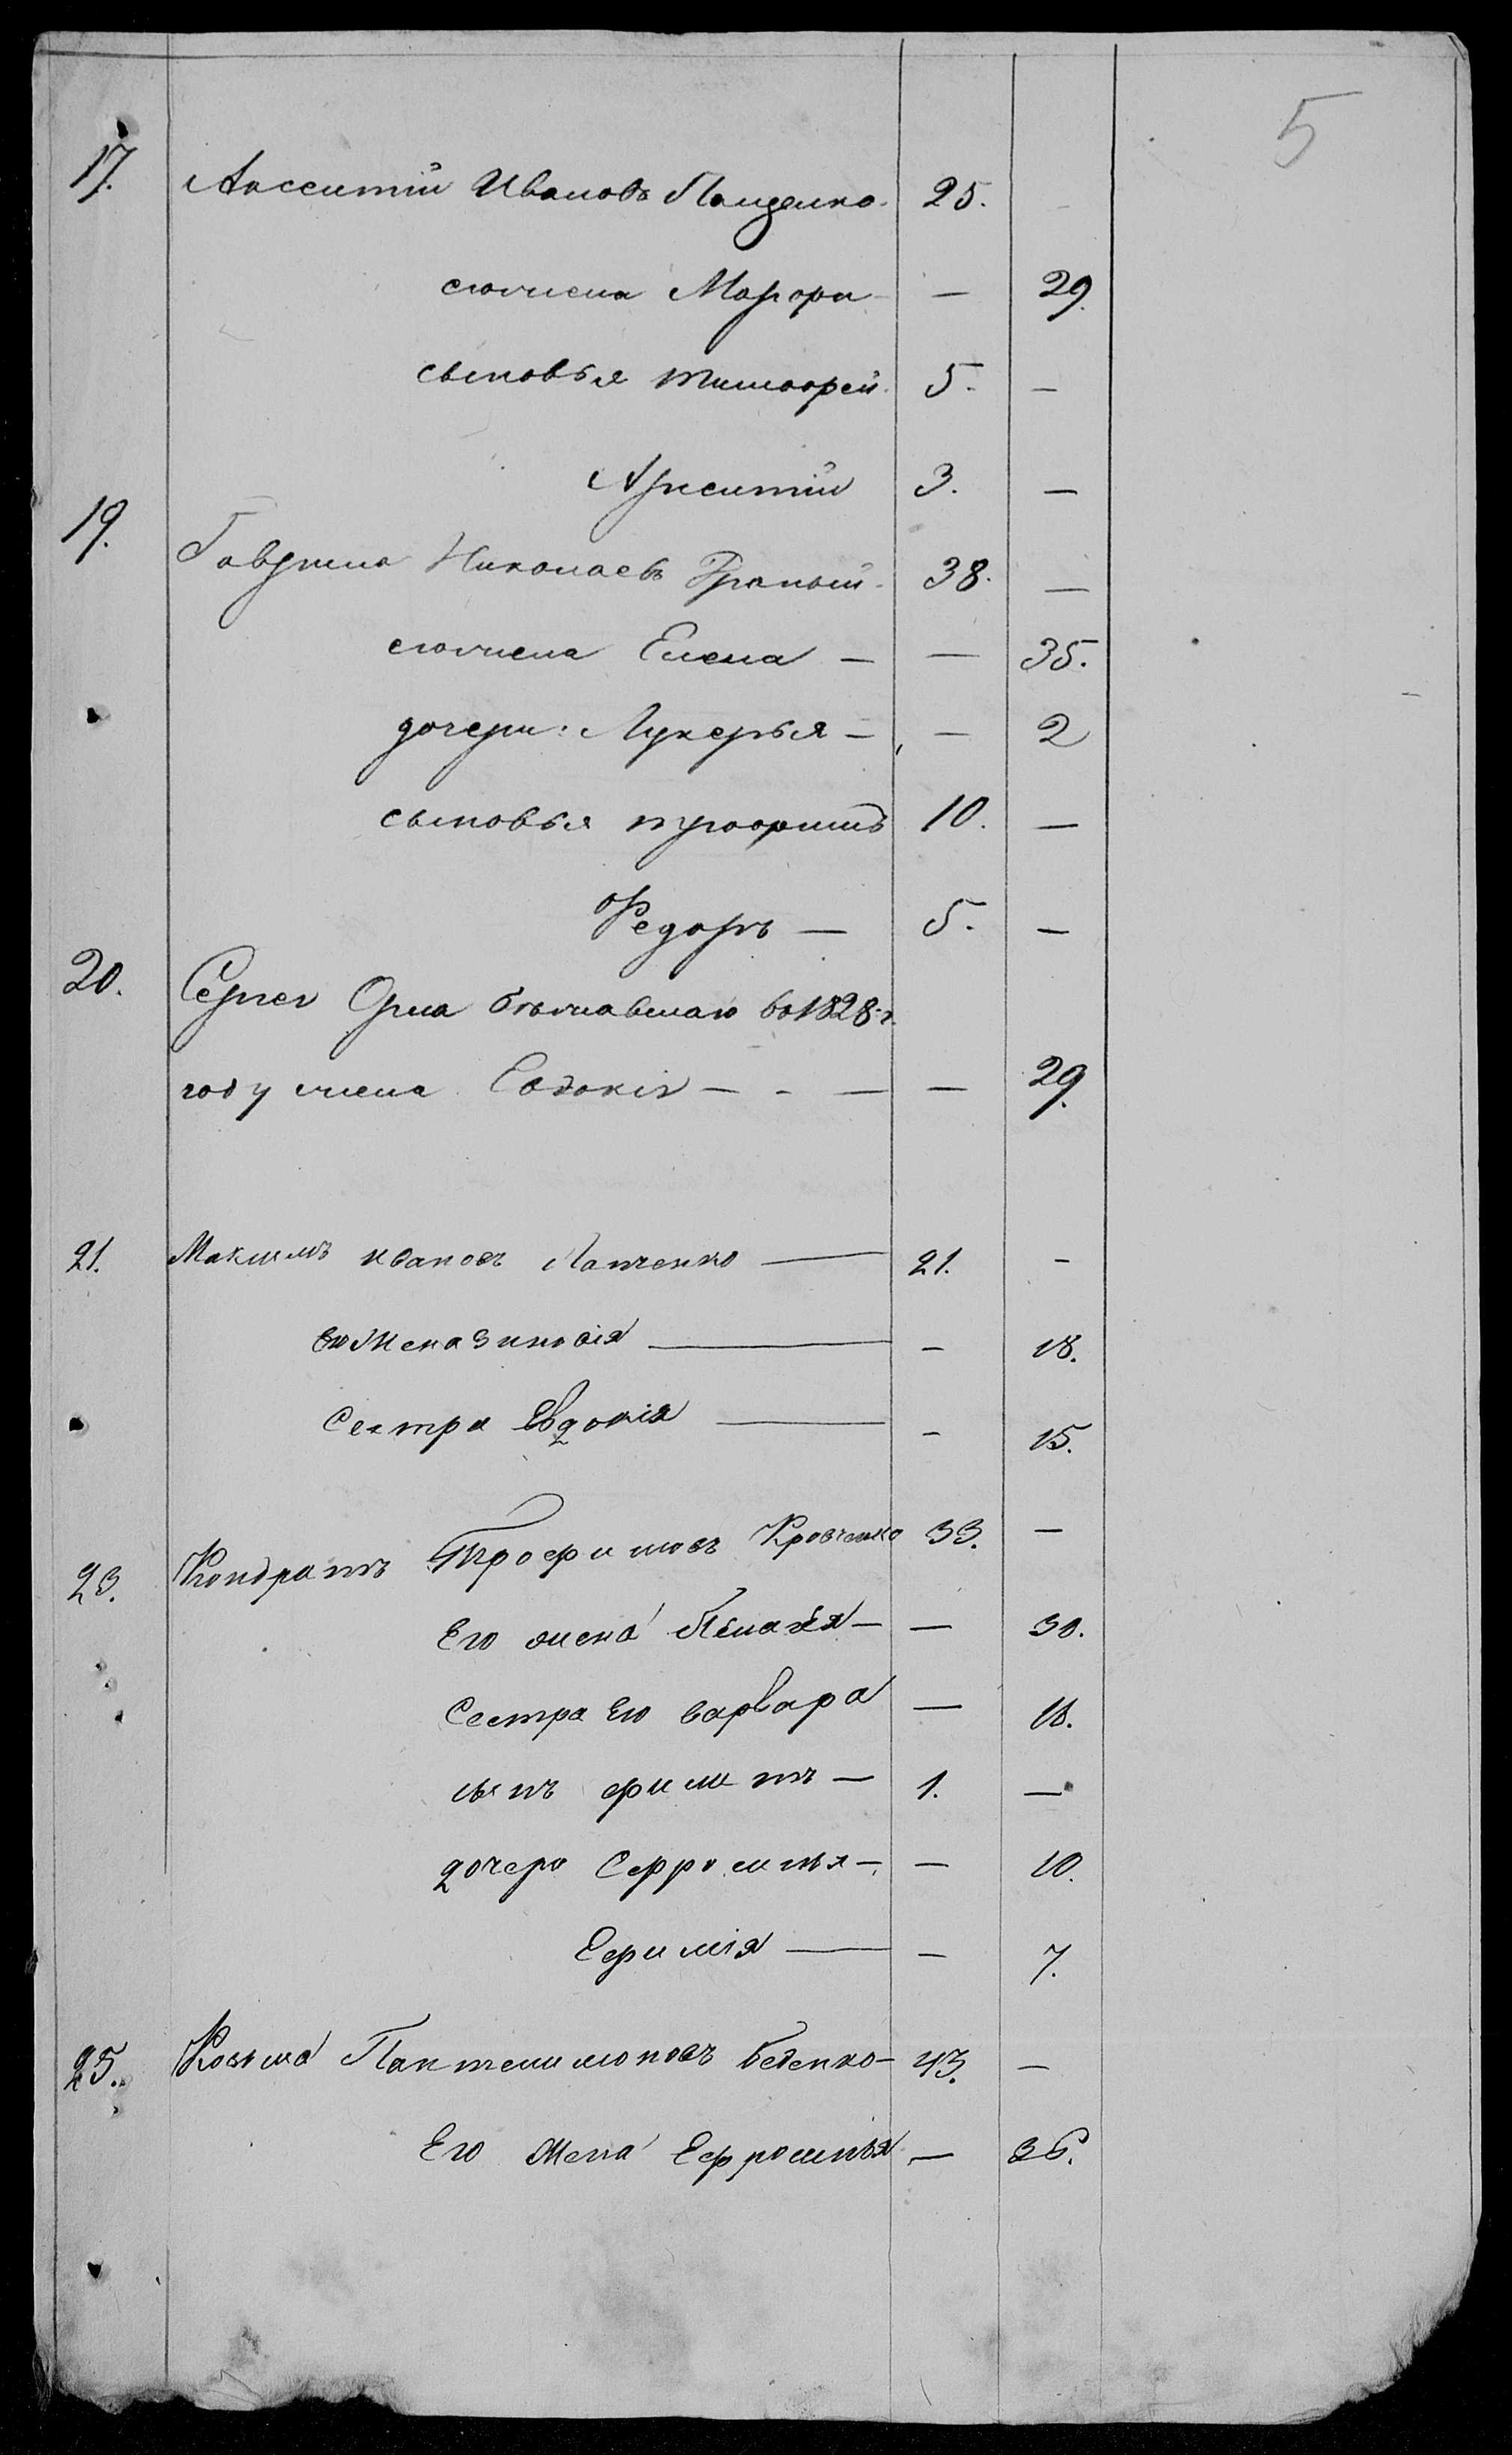 5
17. Авсентій Ивановъ Пащенко 25.
его жена Марфа — 29.
сыновья тимофей 5. —
Арсентій 3. —
19. Гаврила Николаевъ 38. —
его жена Елена — — 35.
дочери: Лукерья — — 2
сыновья трофимъ 10. —
Федоръ — 5. —
20. Сергея бѣжавшаго въ 1828 г.
году жена Евдокія — - — — 29.
21. Максимъ ивановъ Панченко — 21. —
Его Жена Зиновія — — 18.
Сестра Евдокія — — 15.
23. Кондратъ Трофимовъ Кравченко 33. —
Его жена Пелагея — — 30.
Сестра Его варвара — 18.
сынъ филипъ — 1. —
дочери Ефросинья — — 10.
Ефимія — — 7.
25. Козьма Пантелимоновъ беденко — 43. —
Его Жена Ефросинья — 36.